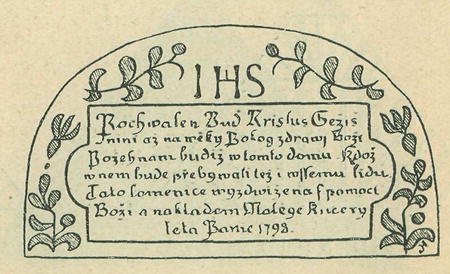 IHS
Pochwalen Buď Kristus Gežis
nini až na wěky Pokog zdrawj Boži
Požehnani budiž w tomto domu. Kdož
w nem bude přebywati tež i wssemu lidu.
Tato lomenice wyzdwižena s pomoci
Boži a nakladem Matege Kucery
leta Panie 1798.